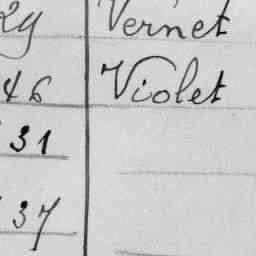 29 Vernet
46 Violet
31
37